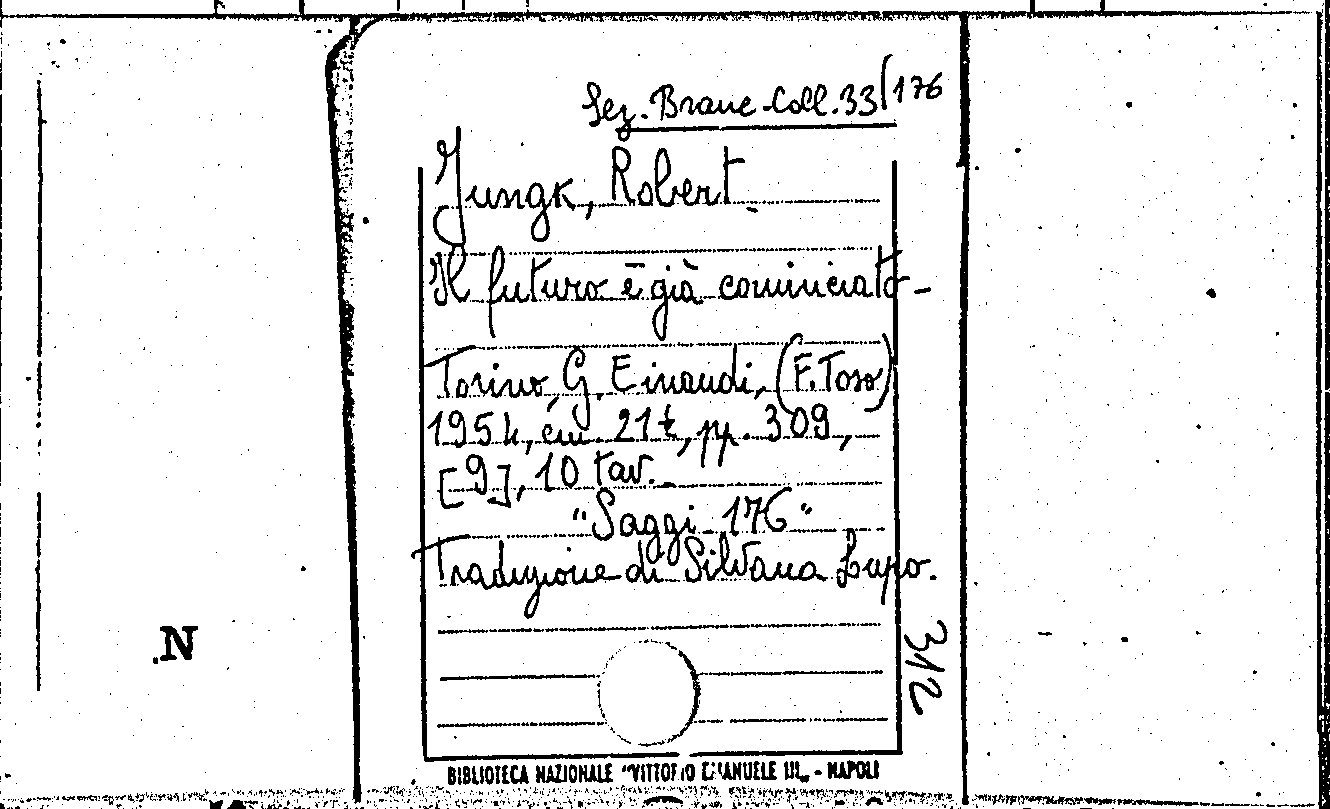 Sez. Branc. Coll. 33/176
Jungk, Robert.
Il futuro è già cominciato -
Torino, G. Einaudi, (F. Toso)
1954, cm. 21½, pp. 309,
[9], 10 tav.
"Saggi 176"
Traduzione di Silvana Lupo.
312
.N
BIBLIOTECA NAZIONALE "VITTORIO EMANUELE III„ - NAPOLI